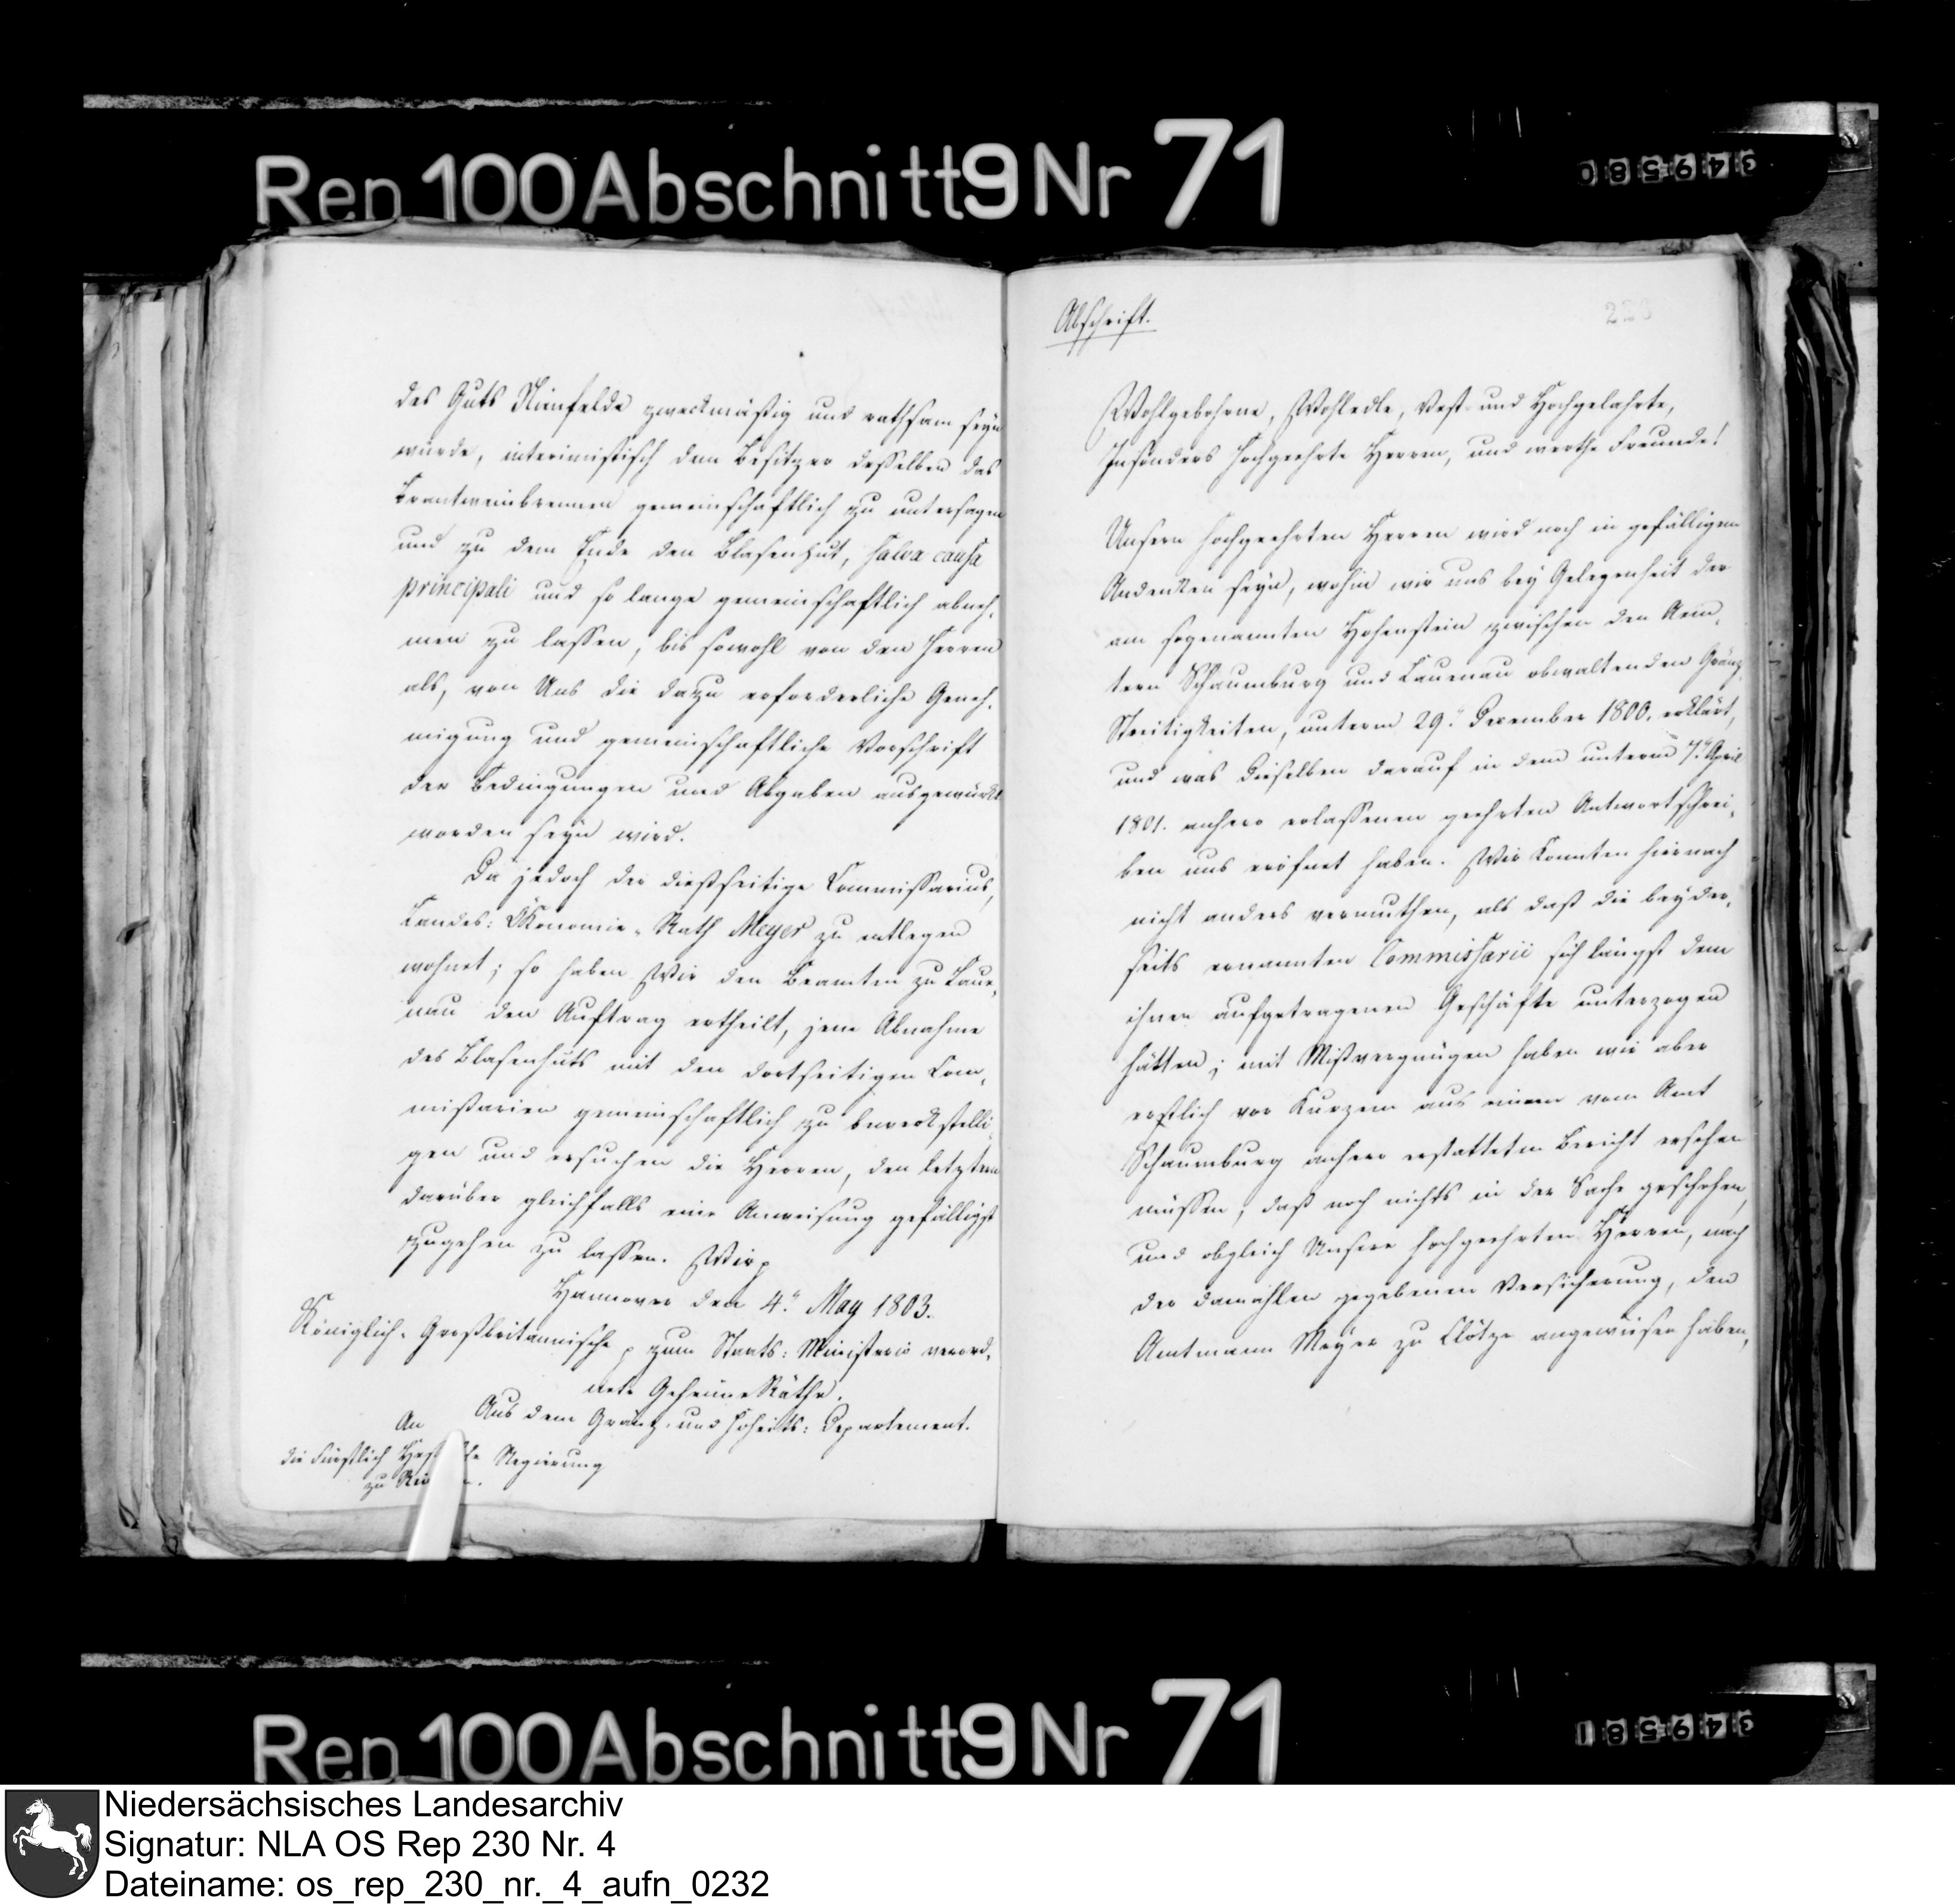 Rep 100 Abschnitt 9 Nr 71
349580
des Guts Nienfelde zweckmäßig und rathsam seyn
würde, interimistisch dem Besitzer desselben das
Brantweinbrennen gemeinschaftlich zu untersagen
und zu dem Ende den Blasenhut, salva causa
principali und so lange gemeinschaftlich abneh,
men zu lassen, bis sowohl von den Herren
als, von Uns die dazu erforderliche Geneh,
migung und gemeinschaftliche Vorschrift
der Bedingungen und Abgaben ausgewürkt
worden seyn wird.
Da jedoch der dießseitige Commissarius,
Landes: Ökonomie-Rath Meyer zu entlegen
wohnet; so haben Wir den Beamten zu Laue,
nau den Auftrag ertheilt, jene Abnahme
des Blasenhuts mit den dortseitigen Com,
mißarien gemeinschaftlich zu bewerkstelli,
gen und ersuchen die Herren, den letztern
darüber gleichfalls eine Anweisung gefälligst
zugehen zu lassen. Wir p
Hannover den 4.n May 1803.
Königlich-Großbritannische p zum Staats: Ministerio verord,
nete Geheime Räthe.
Aus dem Gränz- und Hoheits: Departement.
An
die Fürstlich Regierung
zu
Abschrift.
Wohlgebohrne, Wohledle, Vest- und Hochgelahrte,
Insonders hochgeehrte Herren, und werthe Freunde!
Unsern hochgeehrten Herren wird noch in gefälligem
Andenken seyn, wohin wir uns bey Gelegenheit der
am sogenannten Hohenstein zwischen den Aem,
tern Schaumburg und Lauenau obwaltenden Gränz,
Streitigkeiten, unterm 29.n December 1800. erklärt,
und was dieselben darauf in dem unterm 7.n April
1801. anhero erlassenen geehrten Antwortschrei,
ben uns eröfnet haben. Wir konnten hiernach
nicht anders vermuthen, als daß die beyder,
seits ernannten Commissarii sich längst dem
ihnen aufgetragenen Geschäfte unterzogen
hätten; mit Mißvergnügen haben wir aber
erstlich vor Kurzem aus einem vom Amt
Schaumburg anhero erstatteten Bericht ersehen
müssen, daß noch nichts in der Sache geschehen,
und obgleich Unsere hochgeehrten Herren, nach
der damahlen gegebenen Versicherung, den
Amtmann Meyer zu Clötze angewiesen haben,
Rep 100 Abschnitt 9 Nr 71
349581
Niedersächsisches Landesarchiv
Signatur: NLA OS Rep 230 Nr. 4
Dateiname: os_rep_230_nr._4_aufn_0232